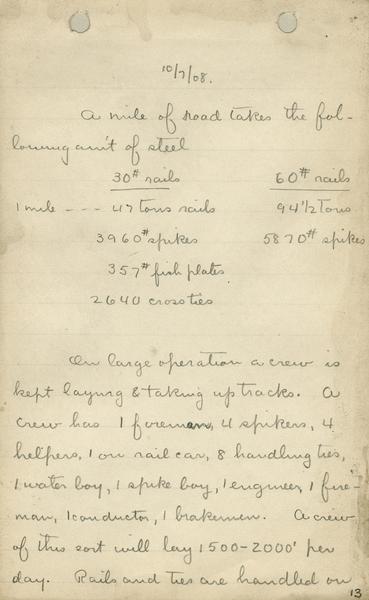 10/7/08.
A mile of road takes the fol-
lowing am't of steel
30# rails 60# rails
1 mile --- 47 tons rails 94 1/2 tons
3960# spikes 5870# spikes
357# fish plates
2640 cross ties
On large operation a crew is
kept laying & taking up tracks. A
crew has 1 foreman, 4 spikers, 4
helpers, 1 on rail car, 8 handling ties,
1 water boy, 1 spike boy, 1 engineer, 1 fire-
man, 1 conductor, 1 brakeman. A crew
of this sort will lay 1500-2000' per
day. Rails and ties are handled on
13